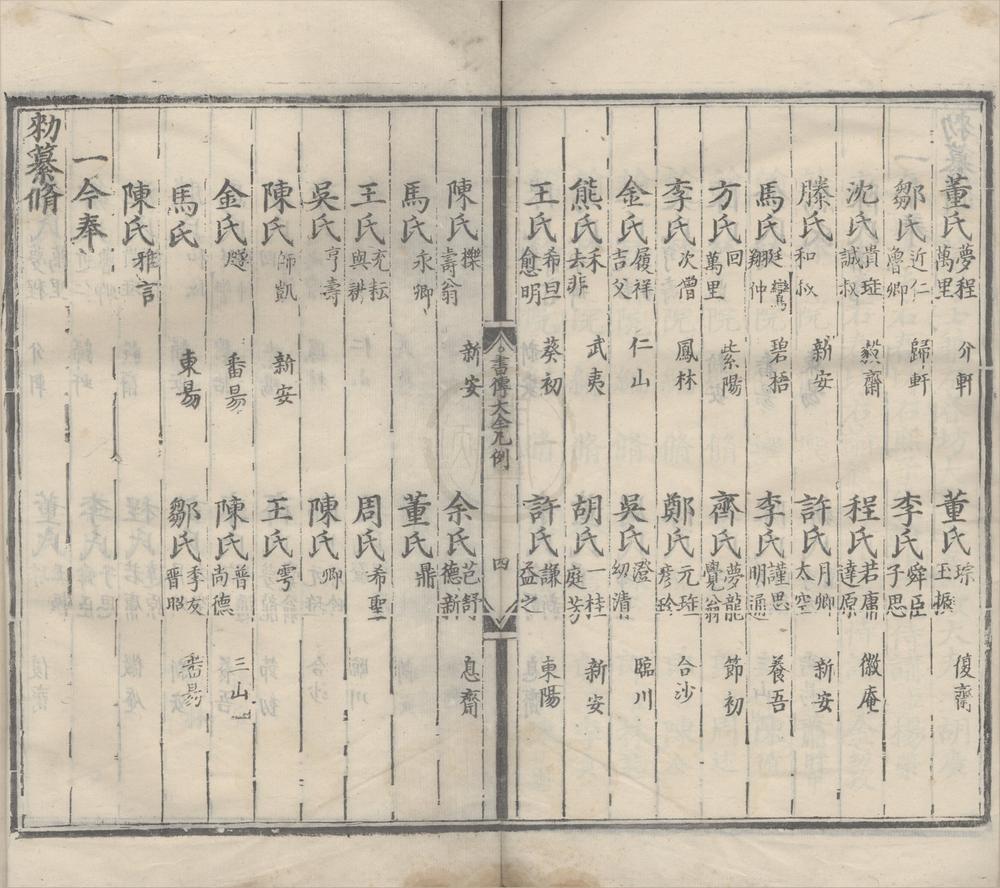 董氏夢程萬里 介軒 董氏琮玉振 復齋
鄒氏近仁魯卿 歸軒 李氏舜臣子思
沈氏貴珤誠叔 毅齋 程氏若庸達原 徽庵
滕氏和叔 新安 許氏月卿太空 新安
馬氏廷鸞翔仲 碧梧 李氏謹思明通 養吾
方氏回萬里 紫陽 齊氏夢龍覺翁 節初
李氏次僧 鳳林 鄭氏元珤彥珍 合沙
金氏履祥吉父 仁山 吳氏澄幼清 臨川
熊氏禾去非 武夷 胡氏一桂庭芳 新安
王氏希旦愈明 葵初 許氏謙益之 東陽
書傳大全凡例 四
陳氏櫟壽翁 新安 余氏芑舒德新 息齋
馬氏永卿 董氏鼎
王氏充耘與耕 周氏希聖
吳氏亨壽 陳氏卿
陳氏師凱 新安 王氏雩
金氏燧 番昜 陳氏普尚德 三山
馬氏 東昜 鄒氏季友晋昭 番昜
陳氏雅言
一今奉
勑纂脩